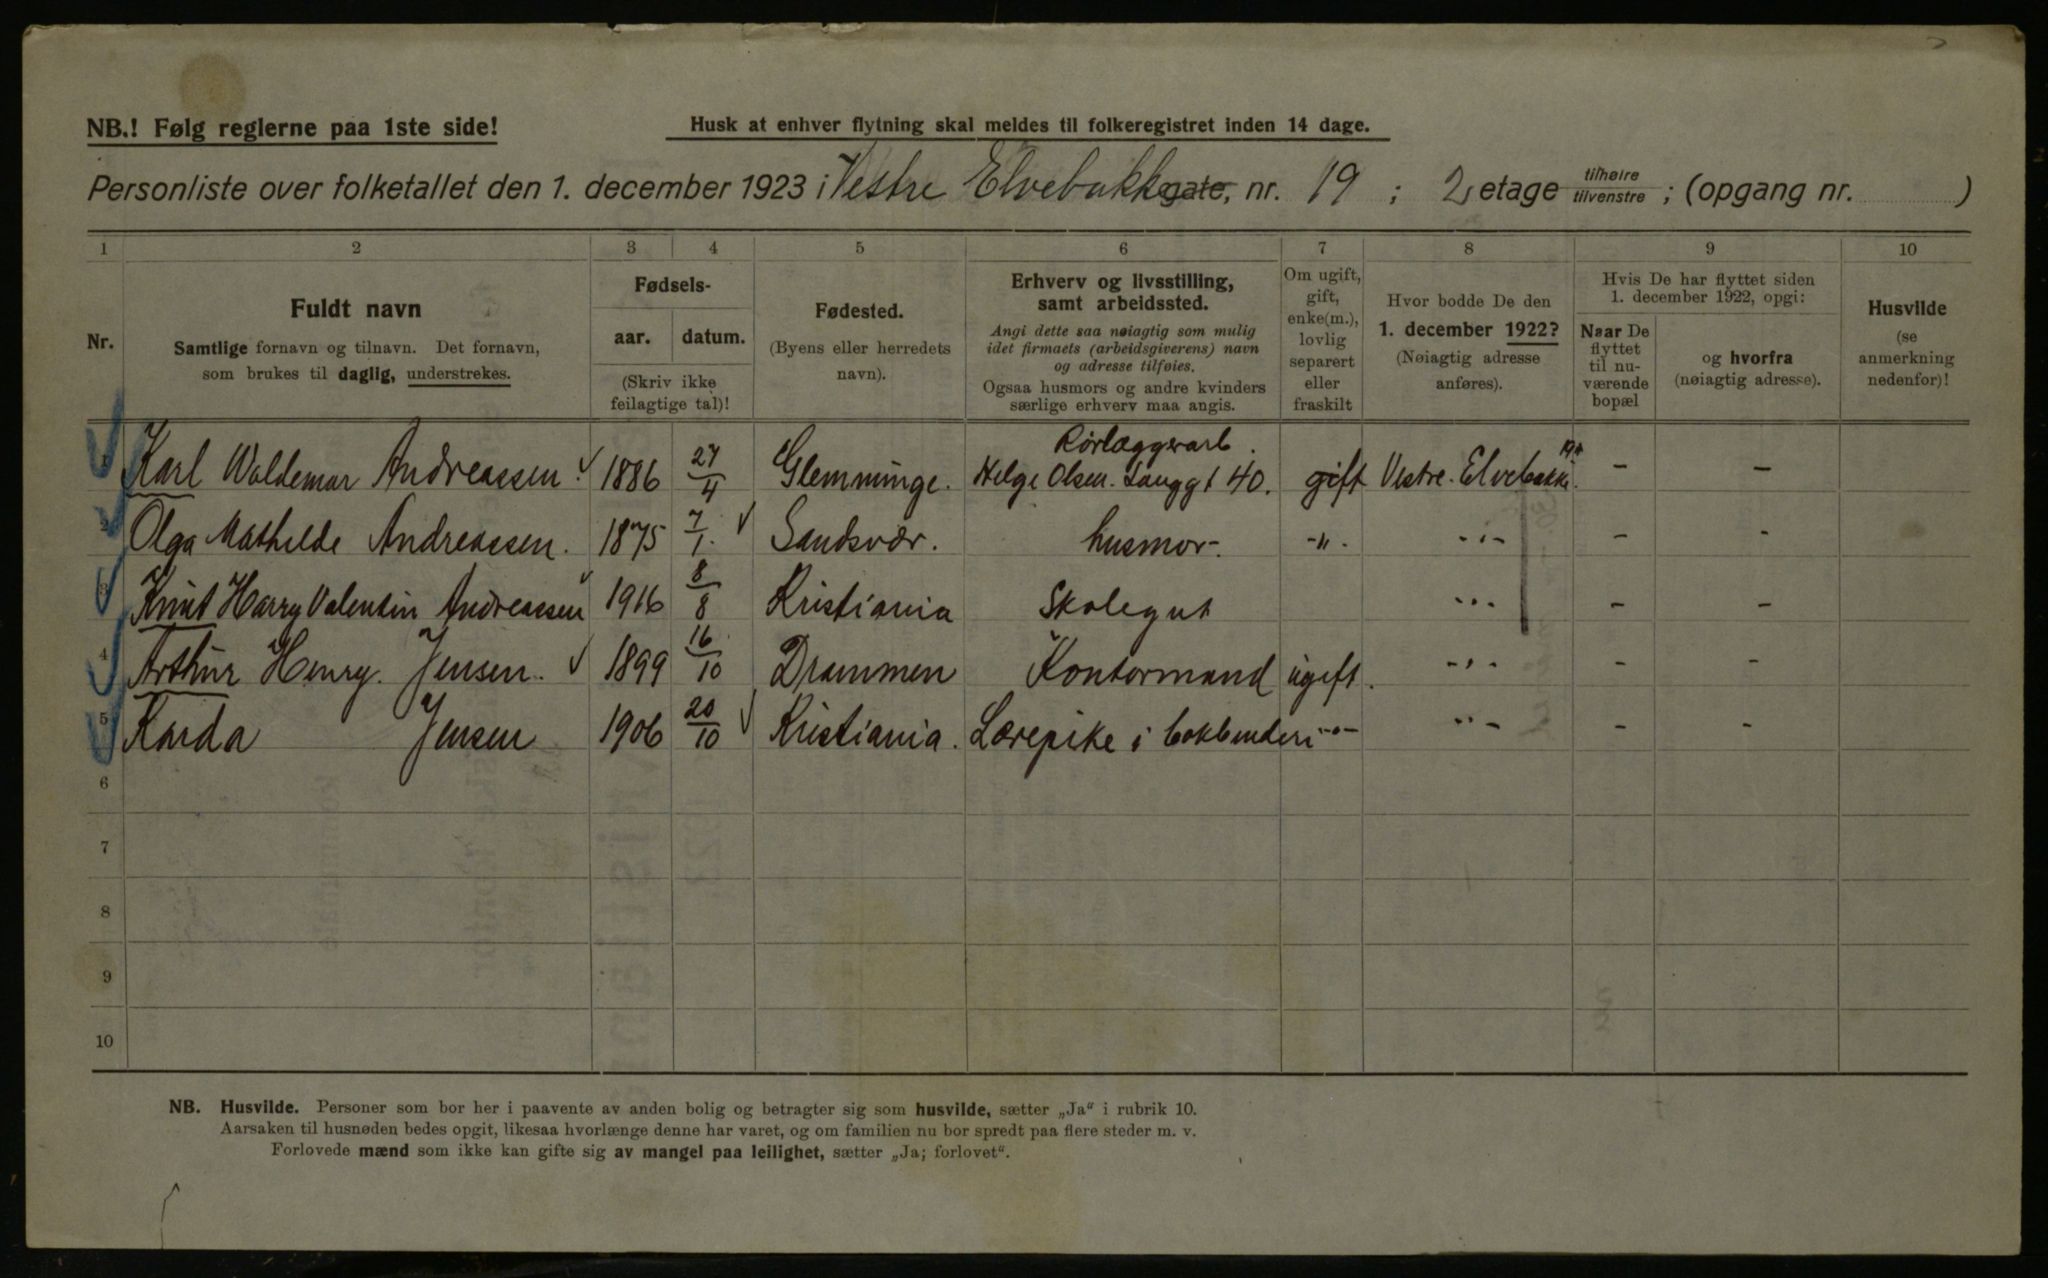 NB.! Følg reglerne paa 1ste side!
Husk at enhver flytning skal meldes til folkeregistret inden 14 dage.
Personliste over folketallet den 1. december 1923 i Vestre Elvebakke gate, nr. 19 ; 2 etage tilhøire tilvenstre ; (opgang nr. )
1 2 3 4 5 6 7 8 9 10
Nr.
Fuldt navn
Samtlige fornavn og tilnavn. Det fornavn,
som brukes til daglig, understrekes.
Fødsels-
aar. datum.
(Skriv ikke
feilagtige tal)!
Fødested.
(Byens eller herredets
navn).
Erhverv og livsstilling,
samt arbeidssted.
Angi dette saa nøiagtig som mulig
idet firmaets (arbeidsgiverens) navn
og adresse tilføies.
Ogsaa husmors og andre kvinders
særlige erhverv maa angis.
Om ugift,
gift,
enke(m.),
lovlig
separert
eller
fraskilt
Hvor bodde De den
1. december 1922?
(Nøiagtig adresse
anføres).
Hvis De har flyttet siden
1. december 1922, opgi:
Naar De
flyttet
til nu-
værende
bopæl
og hvorfra
(nøiagtig adresse).
Husvilde
(se
anmerkning
nedenfor)!
Rørlæggerarb.
1 Karl Waldemar Andreassen. 1886 27/4 Glemminge. Helge Olsen. Langgt 40. gift Vestre. Elvebakke. 19 – –
2 Olga Mathilde Andreassen. 1875 7/1. Sandsvær. husmor-. -"-. -"- – –
3 Knut Harry Valentin Andreassen 1916 8/8 Kristiania Skolegut -"- – –
4 Arthur Henry. Jensen. 1899 16/10 Drammen Kontormand ugift. -"- – –
5 Karda Jensen 1906 20/10 Kristiania. Lærepike i bokbinderi -"- -"- – –
6
7
8
9
10
NB. Husvilde. Personer som bor her i paavente av anden bolig og betragter sig som husvilde, sætter „Ja“ i rubrik 10.
Aarsaken til husnøden bedes opgit, likesaa hvorlænge denne har varet, og om familien nu bor spredt paa flere steder m. v.
Forlovede mænd som ikke kan gifte sig av mangel paa leilighet, sætter „Ja; forlovet“.